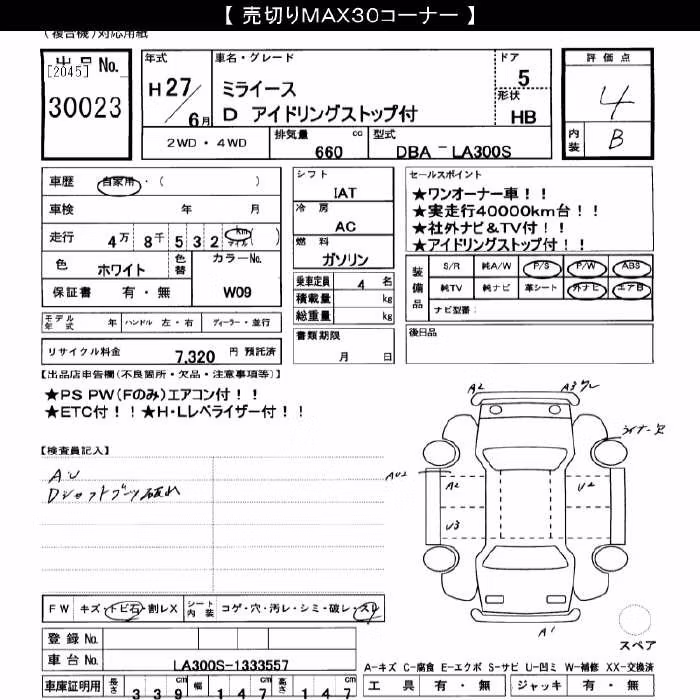 【 売切りMAX30コーナー 】
(複合機)対応用紙
出品 No.
[2045]
30023
年式
H27/6月
車名・グレード
ミライース
D アイドリングストップ付
ドア
5
形状
HB
2WD・4WD
排気量 cc
660
型式
DBA-LA300S
評価点
4
内装
B
車歴 自家用・( )
車検 年 月
走行 4万 8千 5 3 2 km マイル ( )
色 ホワイト
色替
カラーNo.
W09
保証書 有・無
モデル年式 年 ハンドル 左・右 ディーラー・並行
リサイクル料金 7,320 円 預託済
シフト
IAT
冷房
AC
燃料
ガソリン
乗車定員 4 名
積載量 kg
総重量 kg
書類期限
月 日
セールスポイント
★ワンオーナー車!!
★実走行40000km台!!
★社外ナビ&TV付!!
★アイドリングストップ付!!
装備品
S/R 純A/W P/S P/W ABS
純TV 純ナビ 革シート 外ナビ エアB
ナビ型番:
後日品
【出品店申告欄(不良箇所・欠品・注意事項等)】
★PS PW(Fのみ)エアコン付!!
★ETC付!!★H・Lレベライザー付!!
【検査員記入】
AU
Dシャフトブーツ破れ
A2
A3
AU2
A2
U2
U3
A1
スペア
FW キズ・トビ石・割レX
シート内装 コゲ・穴・汚レ・シミ・破レ・スレ
登録 No.
車台 No. LA300S-1333557
A-キズ C-腐食 E-エクボ S-サビ U-凹ミ W-補修 XX-交換済
車庫証明用 長さ 3 3 9 幅 1 4 7 高さ 1 4 7
工具 有・無 ジャッキ 有・無